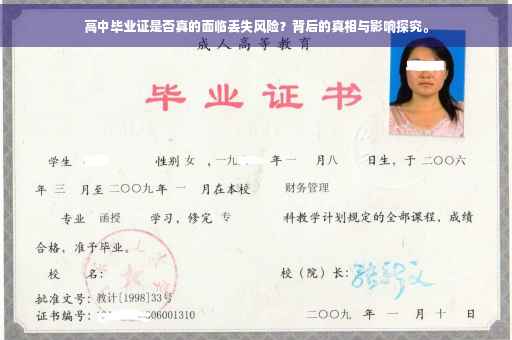 高中毕业证是否真的面临丢失风险？背后的真相与影响探究。
成人高等教育
毕业证书
学生 性别 女 ，一九 年 一 月八 日生，于 二〇〇六
年 三 月至 二〇〇九 年 一 月在本校 财务管理
专业 函授 学习，修完 专 科教学计划规定的全部课程，成绩
合格，准予毕业。
校 名： 校（院）长：
批准文号：教计[1998]33号
证书编号： 06001310 二〇〇九 年 一 月 十 日